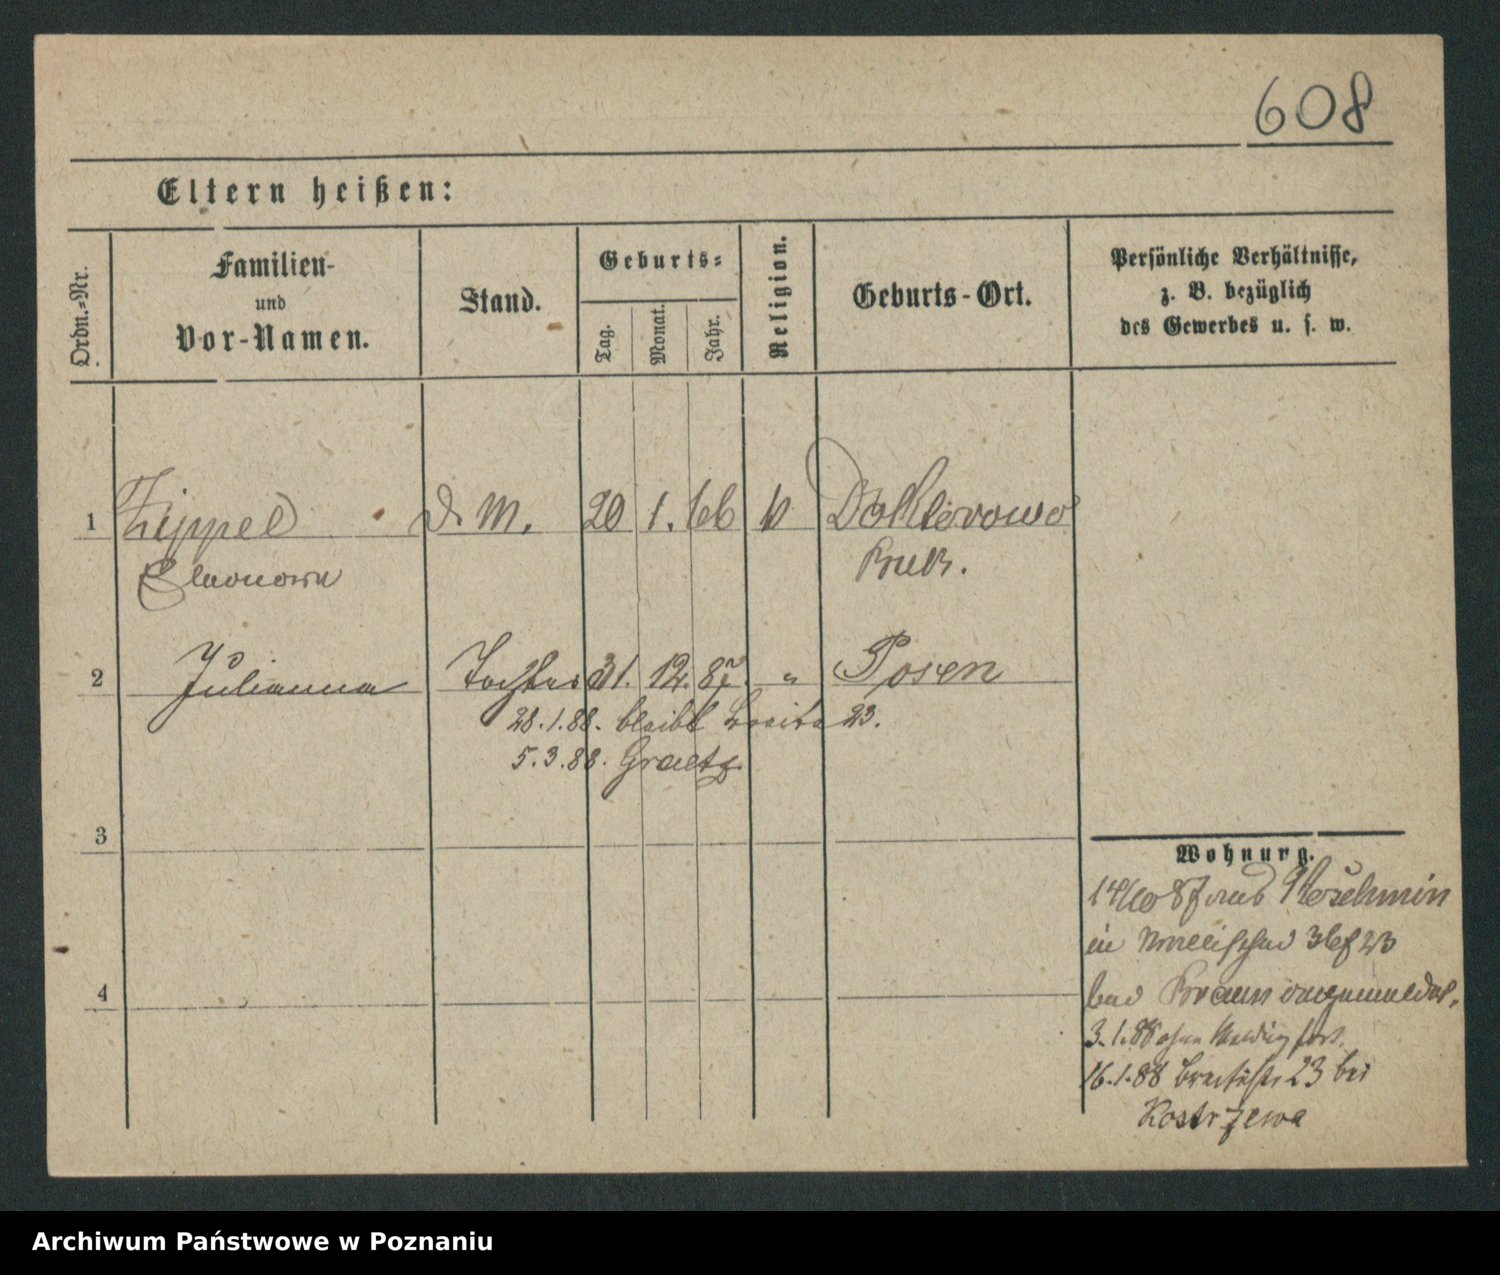 608
Eltern heißen:
Ordn.-Nr.
Familien-
und
Vor-Namen.
Stand.
Geburts-
Tag.
Monat.
Jahr.
Religion.
Geburts-Ort.
Persönliche Verhältnisse,
z. B. bezüglich
des Gewerbes u. s. w.
1 Zippel d. M. 20 1. 66 Doktorowo
Eleonora Buk.
2 Julianna Tochter 31. 12. 87. " Posen
28.1.88. bleibt Breite 23.
5.3.88. Graetz
3
4
Wohnung.
14/10 87 aus Koschmin
in 23
bei Braun angemeldet.
3.1.88 ohne Meldung fort.
16.1.88 Breitestr 23 bei
Kostrzewa
Archiwum Państwowe w Poznaniu